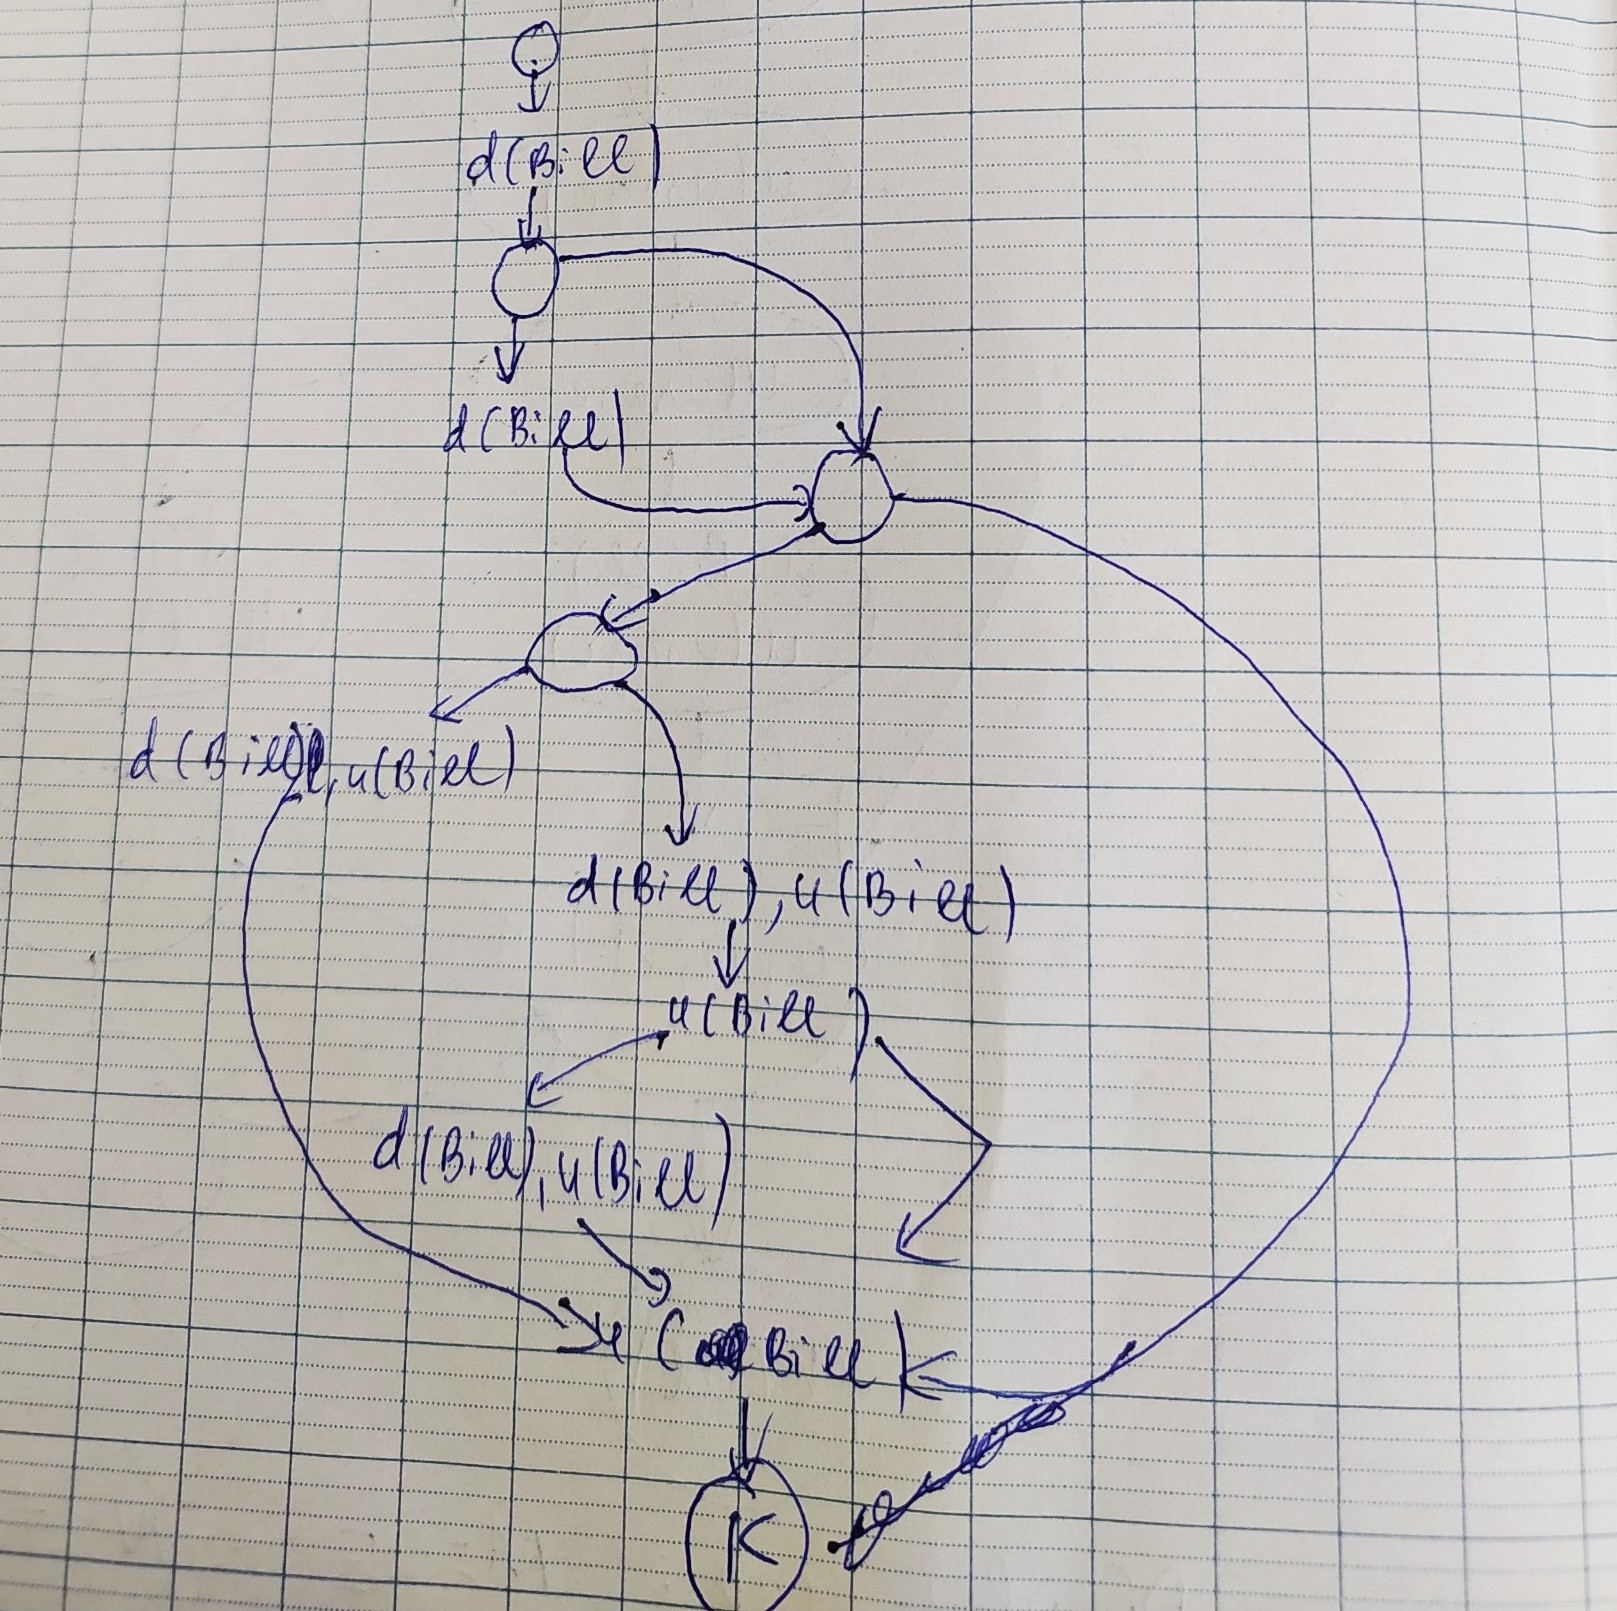 d(Bill)
d(Bill)
d(Bill), u(Bill)
d(Bill), u(Bill)
u(Bill)
d(Bill), u(Bill)
u(Bill)
K